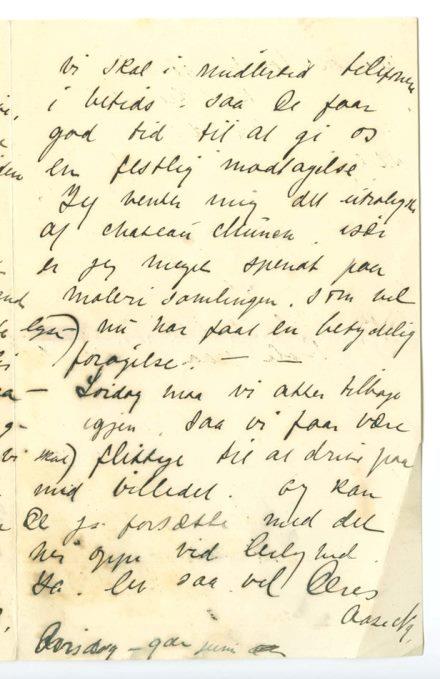 vi skal imidlertid telefonere
i betids. saa De faar
god tid til at gi os
en festlig modtagelse
Jeg venter mig det utroligste
af chateau Munch, især
er jeg meget spendt paa
maleri samlingen, som vel
nu har faat en betydelig
forøgelse. — —
Lørdag maa vi atter tilbage
igjen, saa vi faar være
flittige til at drive paa
med billedet. og kan
De jo forsætte med det
her oppe ved leilighed.
Ja. lev saa vel Deres